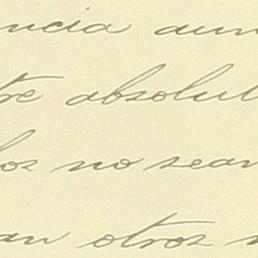 ncia aun
tre absolut
los no sean
an otros